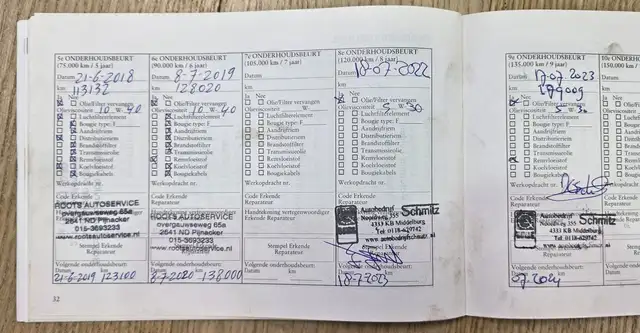 5e ONDERHOUDSBEURT
(75.000 km / 5 jaar)
Datum 21-6-2018
km 113132
Ja Nee
Olie/Filter vervangen
Olieviscositeit 10 W 40
Luchtfilterelement
Bougie type: F
Aandrijfriem
Distributieriem
Brandstoffilter
Transmissieolie
Remvloeistof
Koelvloeistof
Bougiekabels
Werkopdracht nr.
Code Erkende
Reparateur
ROOTS AUTOSERVICE
overgauwseweg 65a
2641 ND Pijnacker
015-3693233
www.rootsautoservice.nl
Stempel Erkende
Reparateur
Volgende onderhoudsbeurt:
Datum km
21-6-2019 123100
6e ONDERHOUDSBEURT
(90.000 km / 6 jaar)
Datum 8-7-2019
km 128020
Ja Nee
Olie/Filter vervangen
Olieviscositeit 10 W 40
Luchtfilterelement
Bougie type: F
Aandrijfriem
Distributieriem
Brandstoffilter
Transmissieolie
Remvloeistof
Koelvloeistof
Bougiekabels
Werkopdracht nr.
Code Erkende
Reparateur
ROOTS AUTOSERVICE
overgauwseweg 65a
2641 ND Pijnacker
015-3693233
www.rootsautoservice.nl
Stempel Erkende
Reparateur
Volgende onderhoudsbeurt:
Datum km
8-7-2020 138000
7e ONDERHOUDSBEURT
(105.000 km / 7 jaar)
Datum
km
Ja Nee
Olie/Filter vervangen
Olieviscositeit W
Luchtfilterelement
Bougie type: F
Aandrijfriem
Distributieriem
Brandstoffilter
Transmissieolie
Remvloeistof
Koelvloeistof
Bougiekabels
Werkopdracht nr.
Code Erkende
Reparateur
Handtekening vertegenwoordiger
Erkende Reparateur
Stempel Erkende
Reparateur
Volgende onderhoudsbeurt:
Datum km
8e ONDERHOUDSBEURT
(120.000 km / 8 jaar)
Datum 18-07-2022
km
Ja Nee
Olie/Filter vervangen
Olieviscositeit 5 W 30
Luchtfilterelement
Bougie type: F
Aandrijfriem
Distributieriem
Brandstoffilter
Transmissieolie
Remvloeistof
Koelvloeistof
Bougiekabels
Werkopdracht nr.
Code Erkende
Reparateur
Autobedrijf Schmitz
Nieuweweg 355
4333 KB Middelburg
Tel 0118-629742
www.autobedrijfschmitz.nl
Reparateur
Volgende onderhoudsbeurt:
Datum km
18-7-2023
32
9e ONDERHOUDSBEURT
(135.000 km / 9 jaar)
Datum 17-07-2023
km
Ja Nee
Olie/Filter vervangen
Olieviscositeit 5 W 30
Luchtfilterelement
Bougie type: F
Aandrijfriem
Distributieriem
Brandstoffilter
Transmissieolie
Remvloeistof
Koelvloeistof
Bougiekabels
Werkopdracht nr.
Code Erkende
Reparateur
Autobedrijf Schmitz
4333 KB Middelburg
Tel 0118-629742
Stempel Erkende
Reparateur
Volgende onderhoudsbeurt:
Datum km
07-2024
10e OND
(150.000
Datum
km